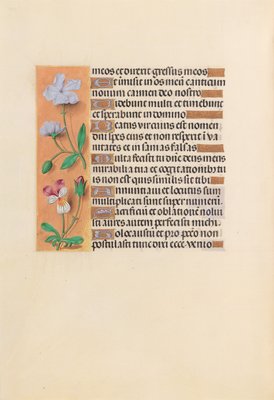 meos et direxit gressus meos
Et inmisit in os meū canticum
novum carmen deo nostro
Videbunt multi et timebunt
et sperabunt in domino
Beatus vir cuius est nomen
dn̄i spes eius et non respexit i va
nitates et in sanias falsas
Multa fecisti tu dn̄e deus meus
mirabilia tua et cogitationib tu
is non est quis similis sit tibi
Annuntiavi et locutus sum
multiplicati sunt super numerū
Sacrificiū et oblationē nolui
sti aures autem perfecisti michi
Holocaustū et pro pcc̄o non
postulasti tunc dixi ecce venio